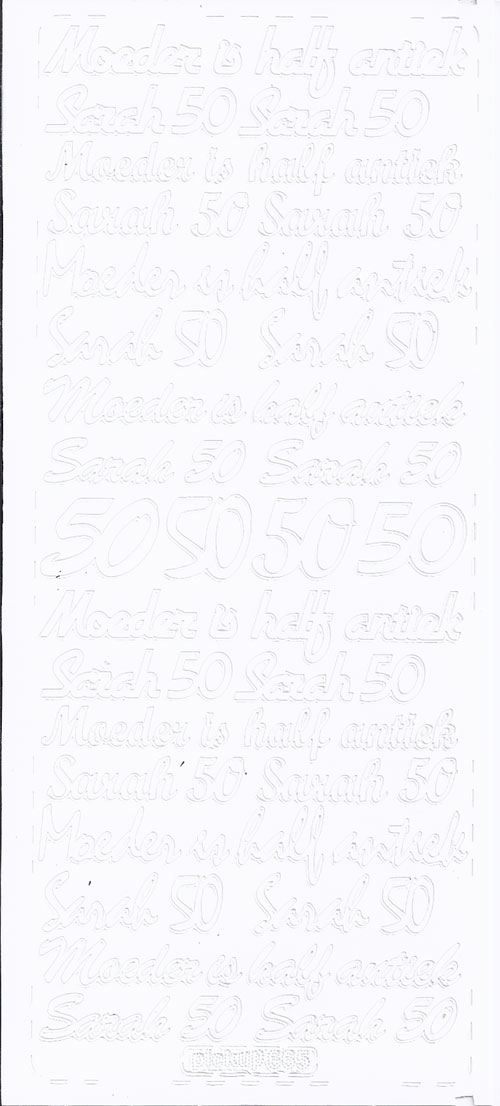 Moeder is half antiek
Sarah 50 Sarah 50
Moeder is half antiek
Sarah 50 Sarah 50
Moeder is half antiek
Sarah 50 Sarah 50
Moeder is half antiek
Sarah 50 Sarah 50
50 50 50 50
Moeder is half antiek
Sarah 50 Sarah 50
Moeder is half antiek
Sarah 50 Sarah 50
Moeder is half antiek
Sarah 50 Sarah 50
Moeder is half antiek
Sarah 50 Sarah 50
pickup 635